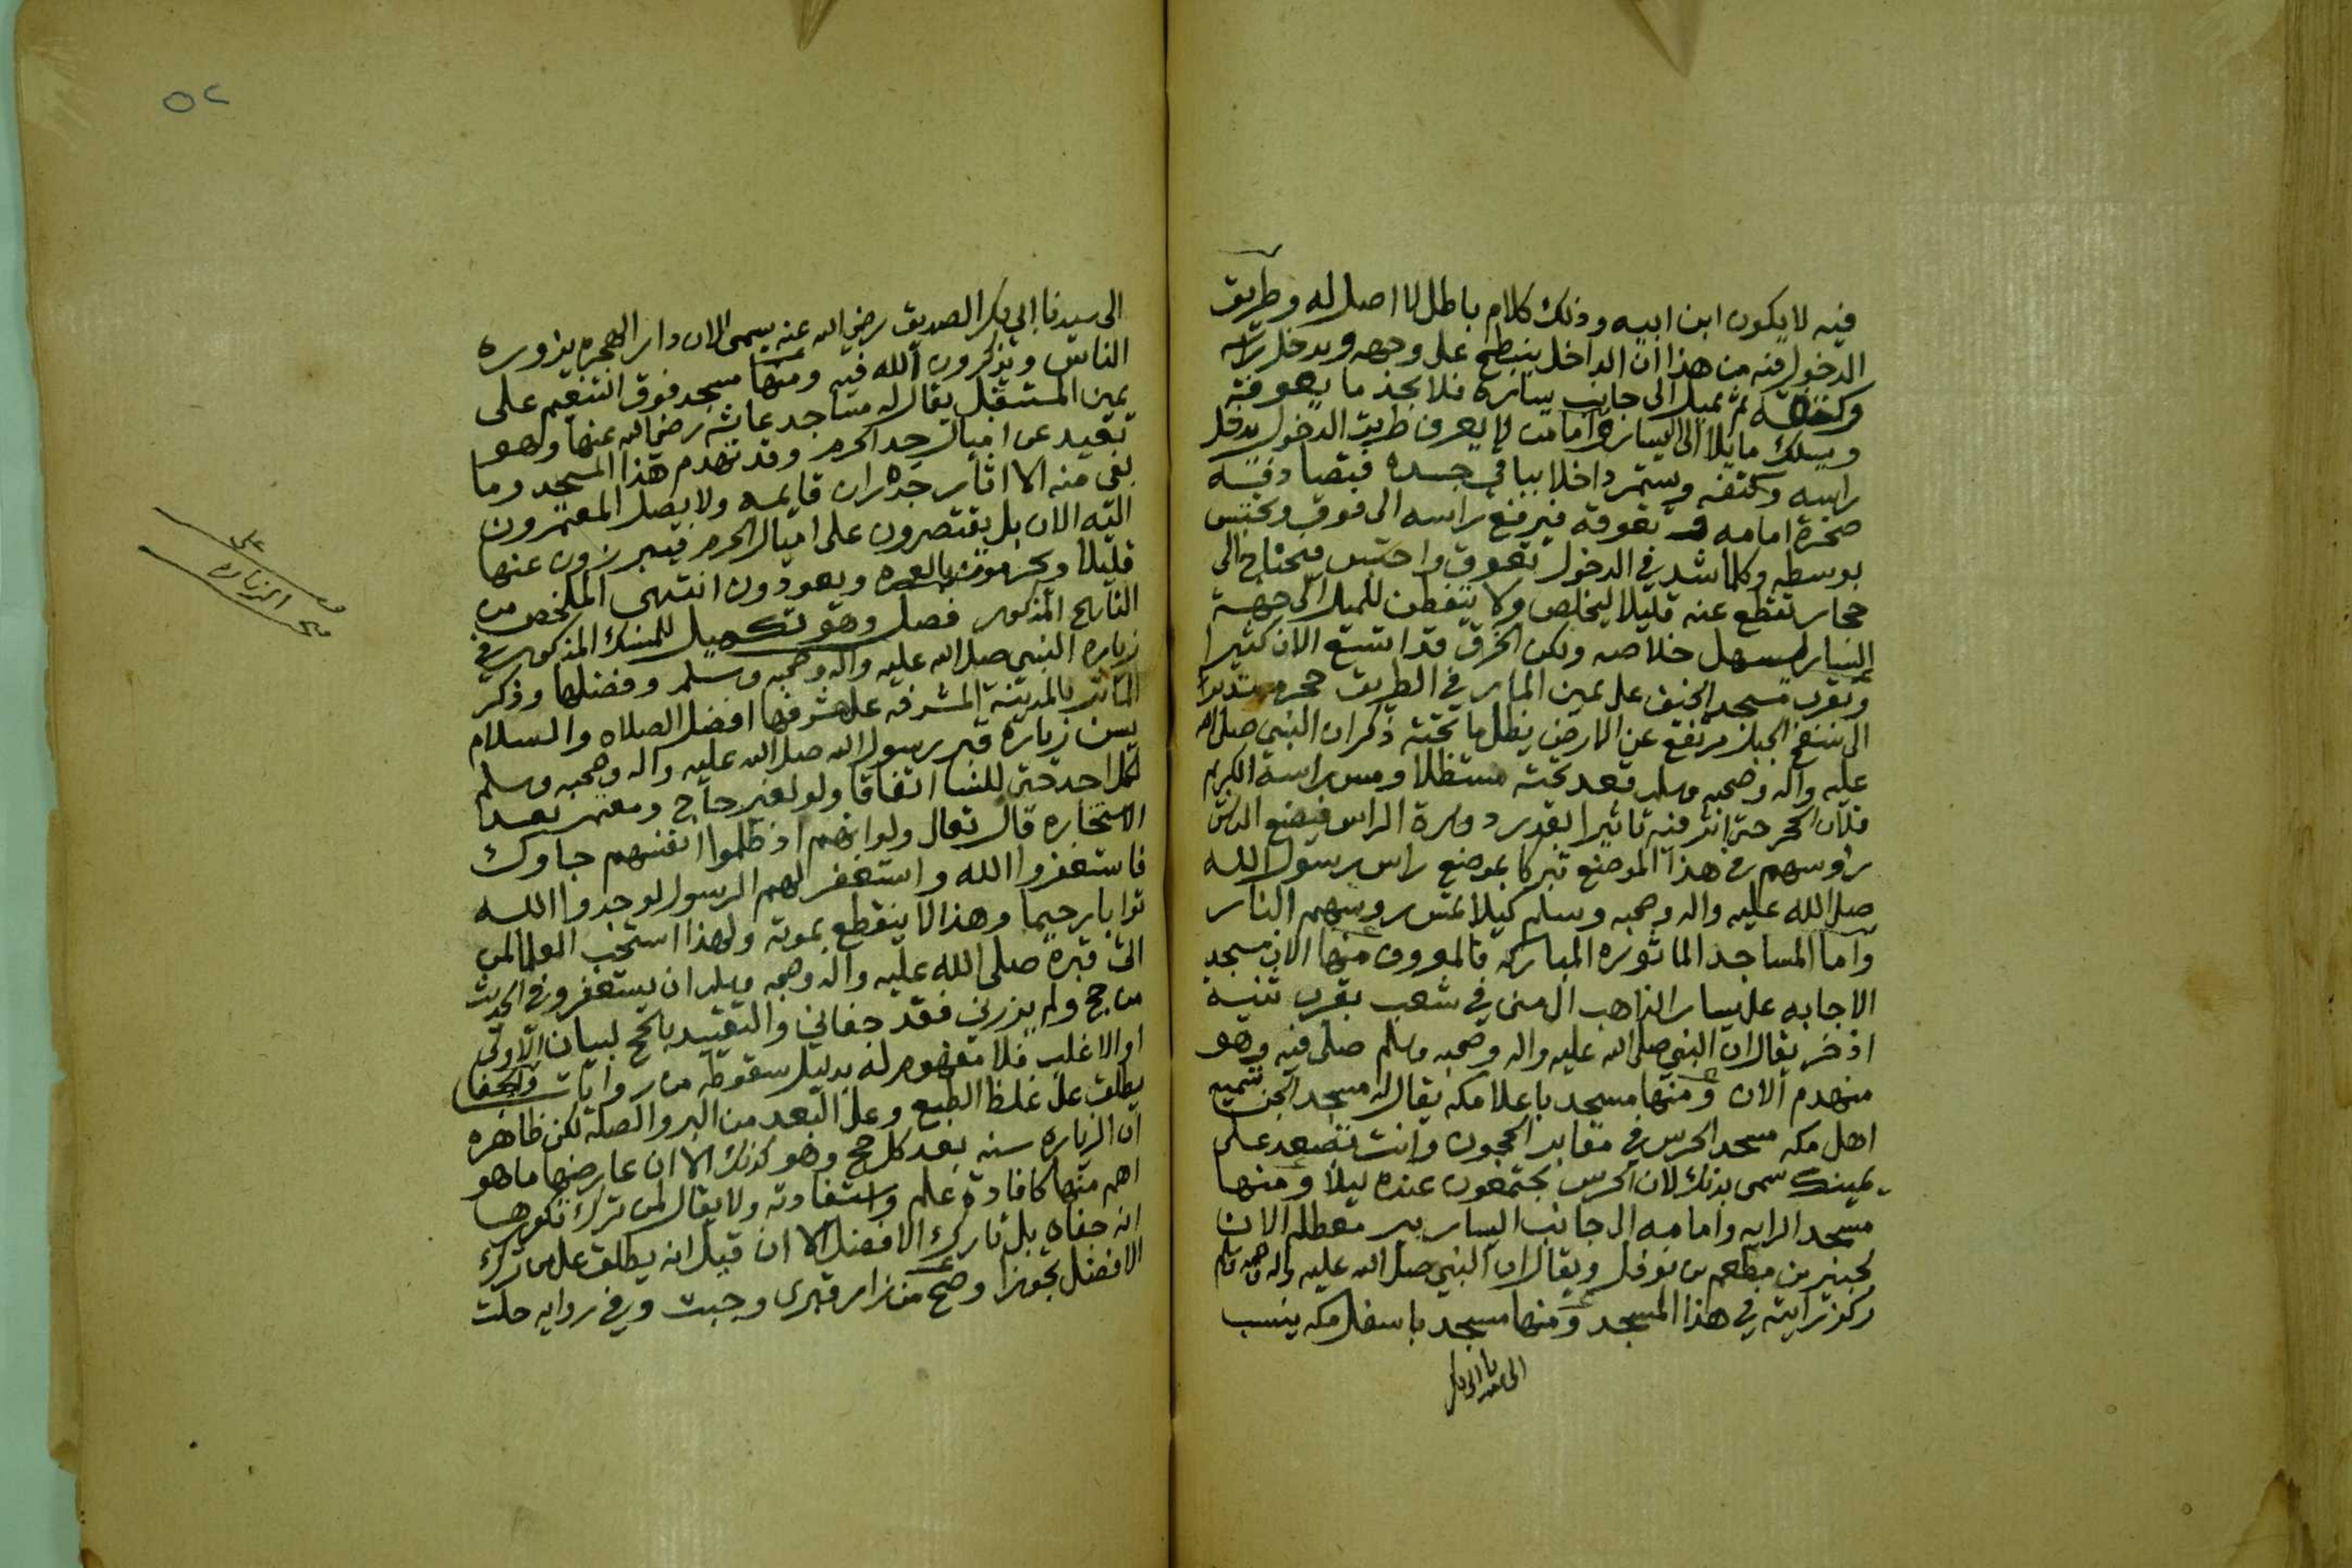 فيه لا يكون ابن ابيه وذلك كلام باطل لا اصل له وطريق
الدخول فيه من هذا ان الداخل ينبطح على وجهه ويدخل راسه
وكتفه ثم يميل الى جانب يساره فلا يجد ما يعوقه
ويسلك مايلا الى اليسار واما من لا يعرف طريق الدخول يدخل
راسه وكتفه ويستمر داخلا بباقي جسده فيصادفه
صخرة امامه تعوقه فيرفع راسه الى فوق ويحتبس
بوسطه وكلما شد في الدخول تعوق واحتبس فيحتاج الى
حجار تقطع عنه قليلا ليخلص ولا يتفطن للميل الى جهة
اليسار ليسهل خلاصه ولكن الخرق قد اتسع الان كثيرا
وبقرب مسجد الخيف على يمين المار في الطريق حجر مستدير
الى سفح الجبل مرتفع عن الارض يظل ما تحته ذكر ان النبي صلى الله
عليه واله وصحبه وسلم قعد تحته مستظلا ومس براسه الكريم
فلان الحجر حتى اثر فيه تاثيرا بقدر دورة الراس فيضع الناس
روسهم في هذا الموضع تبركا بموضع راس رسول الله
صلى الله عليه واله وصحبه وسلم كيلا تمس روسهم النار
واما المساجد الماثوره المباركه فالمعروف منها الان مسجد
الاجابه على يسار الذاهب الى منى في شعب بقرب ثنية
اذخر يقال ان النبي صلى الله عليه واله وصحبه وسلم صلى فيه وهو
منهدم الان ومنها مسجد باعلا مكه يقال له مسجد الجن تسميه
اهل مكه مسجد الحرس في مقابر الحجون وانت تصعد على
يمينك سمى بذلك لان الحرس يجتمعون عنده ليلا ومنها
مسجد الرايه وامامه الى جانب اليسار بير معطله الان
لجبير بن مطعم بن نوفل ويقال ان النبي صلى الله عليه واله وصحبه وسلم
ركز رايته في هذا المسجد ومنها مسجد باسفل مكه ينسب
٥٢
الى سيدنا ابي بكر الصديق رضي الله عنه يسمى الان دار الهجره يزوره
الناس ويذكرون الله فيه ومنها مسجد فوق التنعيم على
يمين المستقبل يقال له مساجد عائشه رضي الله عنها وهو
بعيد عن اميال حد الحرم وقد تهدم هذا المسجد وما
بقي منه الا اثار جدران قايمه ولا يصل المعتمرون
اليه الان بل يقتصرون على اميال الحرم فيبرزون عنها
قليلا ويحرمون بالعمره ويعودون انتهى الملخص من
التاريخ المذكور فصل وهو تكميل للمنسك المذكور في
زياره النبي صلى الله عليه واله وصحبه وسلم وفضلها وذكر
الماثر بالمدينة المشرفه على مشرفها افضل الصلاه والسلام
يسن زيارة قبر رسول الله صلى الله عليه واله وصحبه وسلم
لكل احد حتى للنسا اتفاقا ولو لغير حاج ومعتمر بعد
الاستخاره قال تعالى ولو انهم اذ ظلموا انفسهم جاوك
فاستغفروا الله واستغفر لهم الرسول لوجدوا الله
توابا رحيما وهذا لا ينقطع بموته ولهذا استحب العلما لمن
اتى قبره صلى الله عليه واله وصحبه وسلم ان يستغفر وفي الحديث
من حج ولم يزرني فقد جفاني والتقييد بالحج لبيان الاولى
او الاغلب فلا مفهوم له بدليل سقوطه من روايات والجفا
يطلق على غلظ الطبع وعلى البعد من البر والصله لكن ظاهره
ان الزياره سنه بعد كل حج وهو كذلك الا ان عارضها ما هو
اهم منها كافادة علم واستفادته ولا يقال لمن ترك تكررها
انه جفاه بل تارك الافضل الا ان قيل انه يطلق على من ترك
الافضل تجوزا وصح من زار قبري وجبت وفي روايه حلت
الزياره